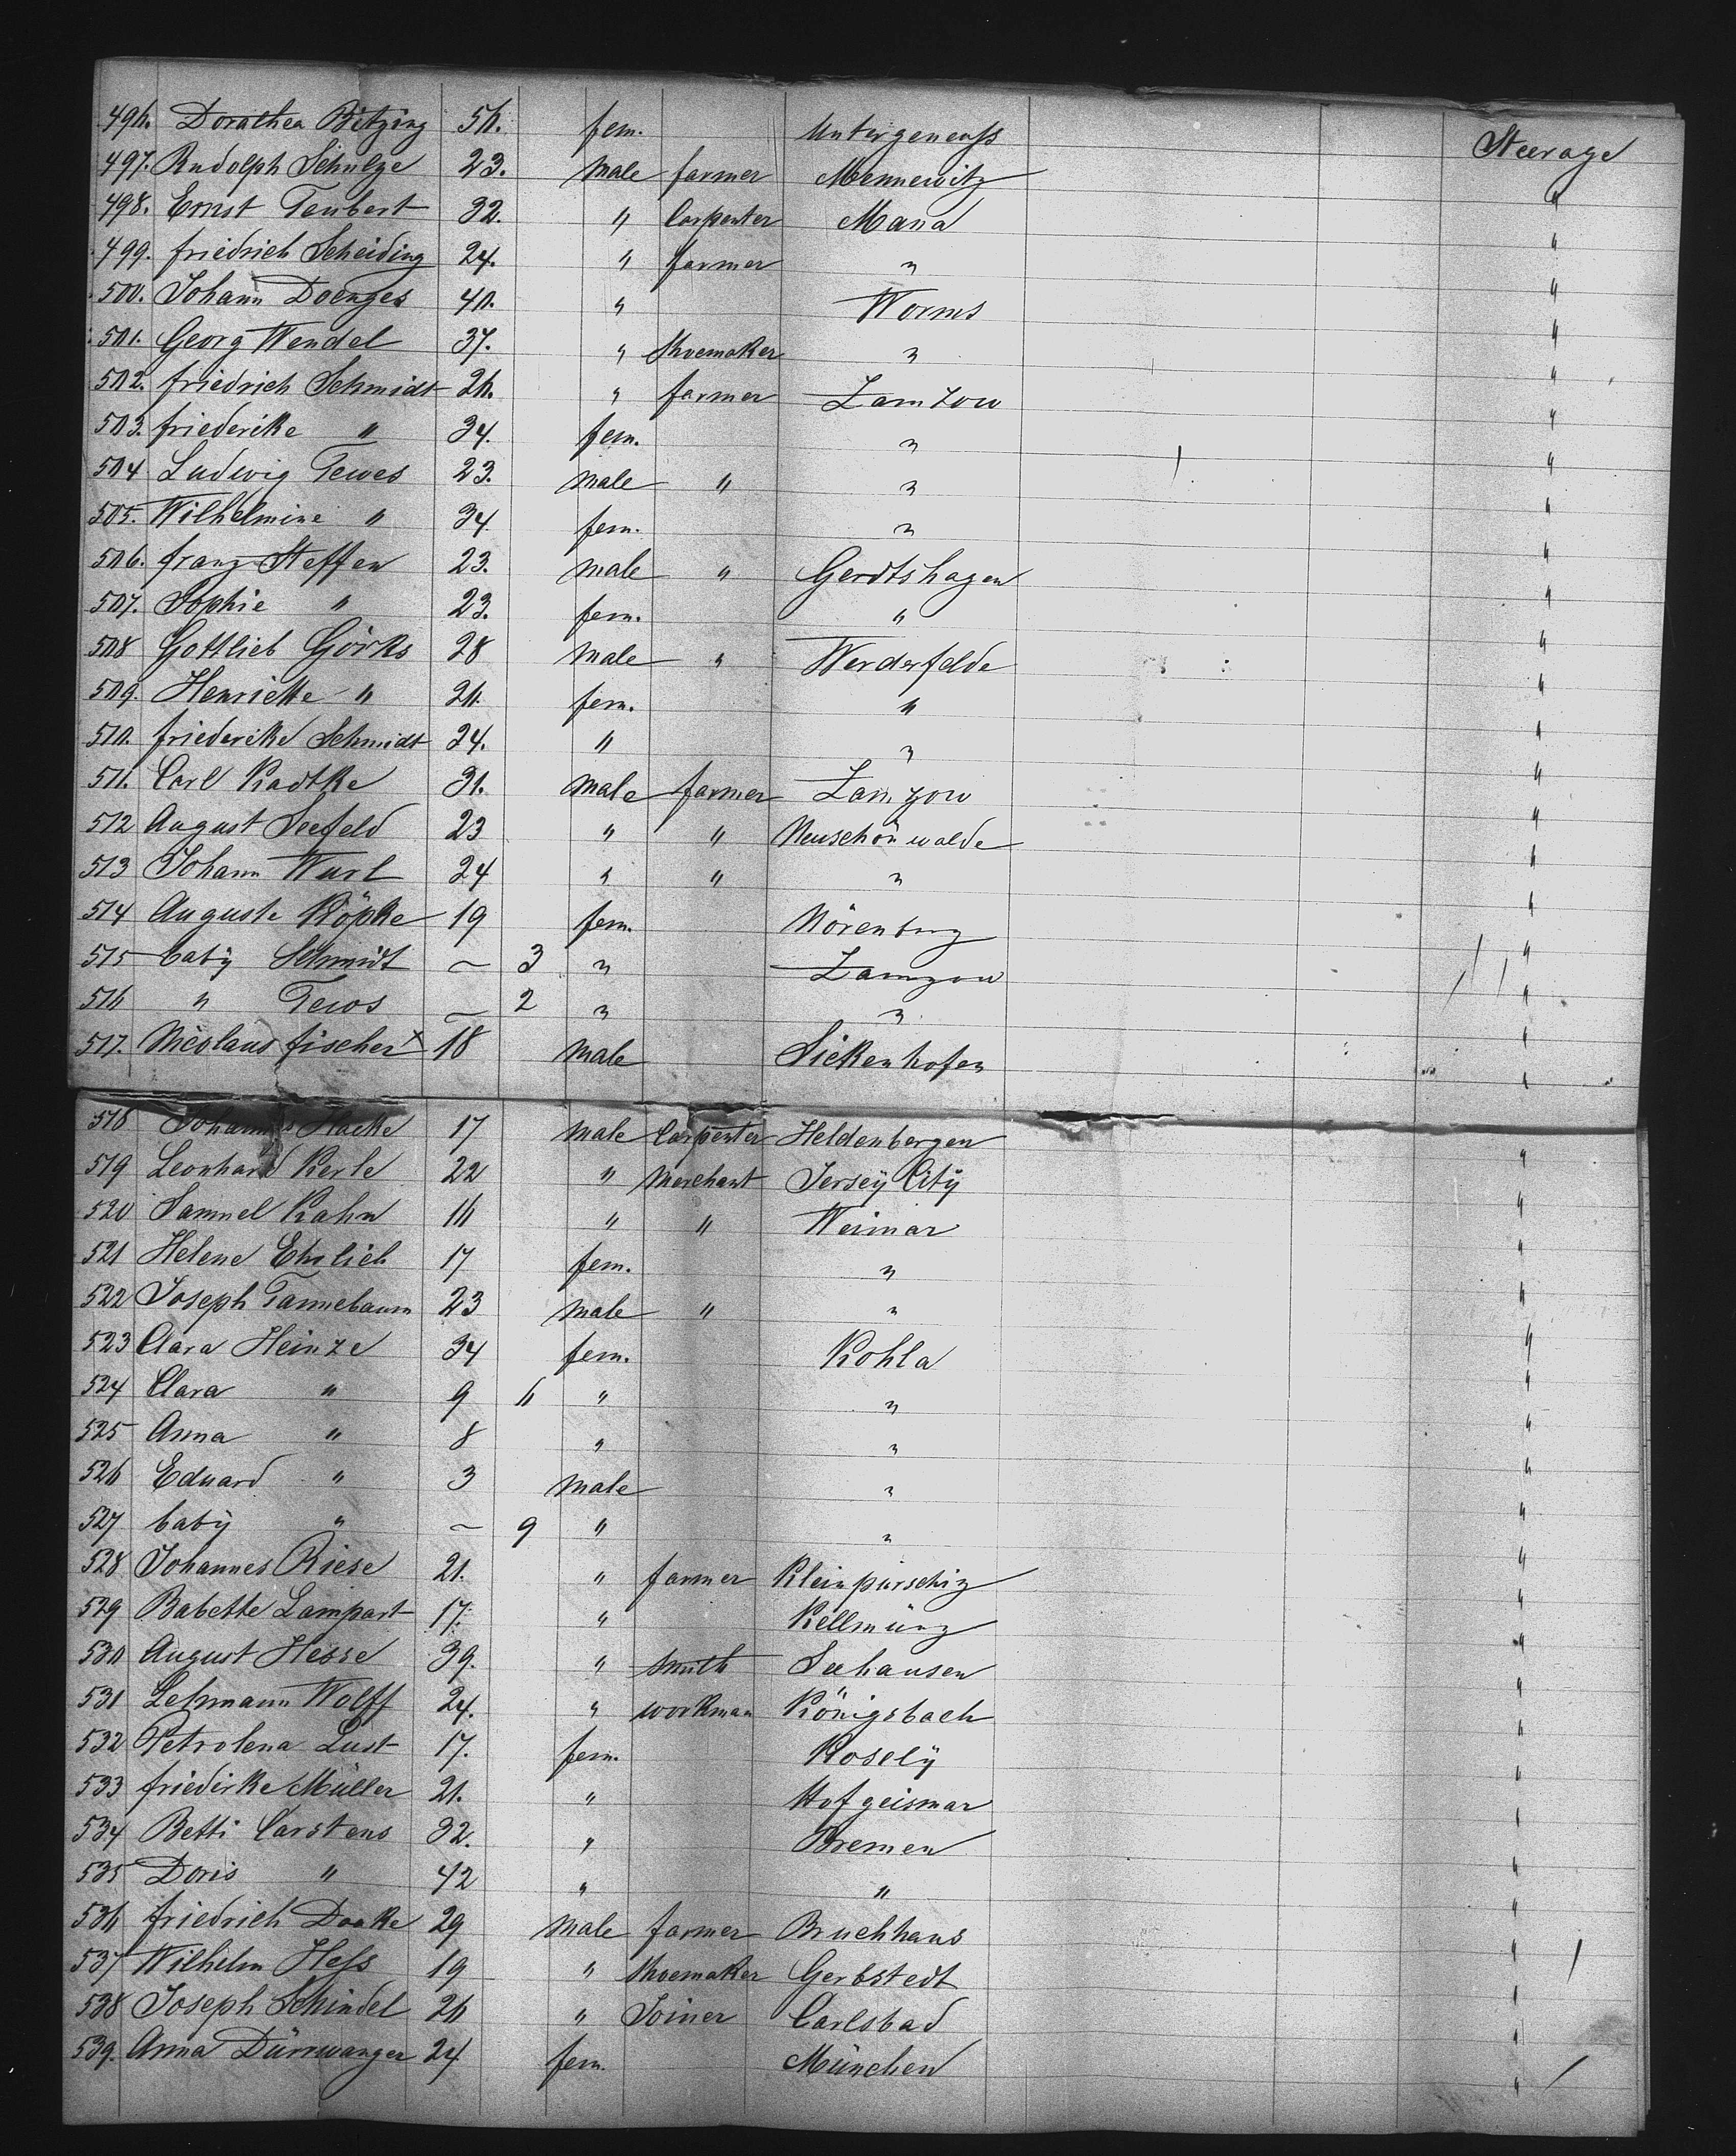 496. Dorathea Bitzing 56. fem. Untergeneuss Steerage
497. Rudolph Schulze 23. male farmer Mennewitz "
498. Ernst Teubert 32. " Carpenter Mana "
499. friedrich Scheiding 24. " farmer " "
500. Johann Doenges 40. " Worms "
501. Georg Wendel 37. " Shoemaker " "
502. friedrich Schmidt 26. " farmer Zamzow "
503. friederike " 34. fem. " "
504 Ludwig Tewes 23. male " " "
505. Wilhelmine " 34 fem. " "
506. franz Steffen 23. male " Gerdtshagen "
507. Sophie " 23. fem. " "
508 Gottlieb Görks 28 male " Werderfelde "
509. Henriette " 26. fem. " "
510. friederike Schmidt 24. " " "
511. Carl Radtke 31. male farmer Zamzow "
512 August Seefeld 23 " " Neuschönwalde "
513 Johann Wurl 24 " " " "
514 Auguste Köpke 19 fem. Nörenburg "
515 baby Schmidt – 3 " Zamzow "
516 " Tewes – 2 " " "
517. Nicolaus fischer x 18 male Sickenhofen "
518 Johannes Hacke 17 male Carpenter Heldenbergen "
519 Leonhard Kerle 22 " Merchant Jersey City "
520 Samuel Kahn 16 " " Weimar "
521 Helene Ehrlich 17 fem. " "
522 Joseph Tannebaum 23 male " " "
523 Clara Heinze 34 fem. Kohla "
524 Clara " 9 6 " " "
525 Anna " 8 " " "
526 Eduard " 3 male " "
527 baby " – 9 " " "
528 Johannes Riese 21. " farmer Kleinpürschiz "
529 Babette Lampart 17. " Kellmünz "
530 August Hesse 39. " Smith Seehausen "
531 Lehmann Wolff 24. " workman Königsbach "
532 Petrolena Lust 17. fem. Kosely "
533 friedirke Müller 21. " Hofgeismar "
534 Betti Carstens 32. " Bremen "
535 Doris " 42 " " "
536 friedrich Daake 29 male farmer Bruchhaus "
537 Wilhelm Hess 19 " Shoemaker Gerbstedt "
538 Joseph Schindel 26 " Joiner Carlsbad "
539. Anna Dürrwanger 24 fem. München "